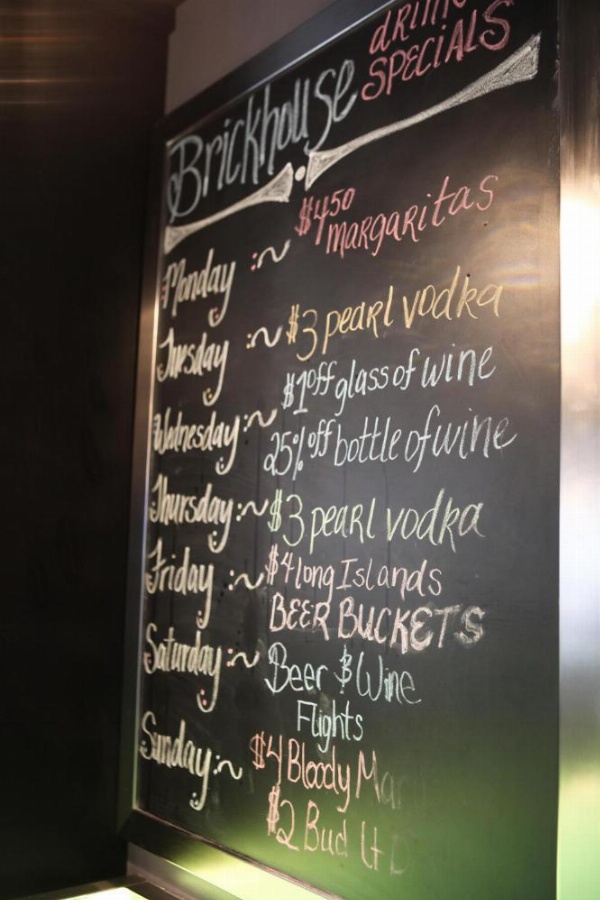 Brickhouse drink SPECIALS
Monday :~ $4.50 MARGARITAS
Tuesday :~ $3 pearl vodka
Wednesday :~ $1 off glass of wine
25% off bottle of wine
Thursday :~ $3 pearl vodka
Friday :~ $4 long Islands
BEER BUCKETS
Saturday :~ Beer & Wine
Flights
Sunday :~ $4 Bloody Mar
$2 Bud Lt D